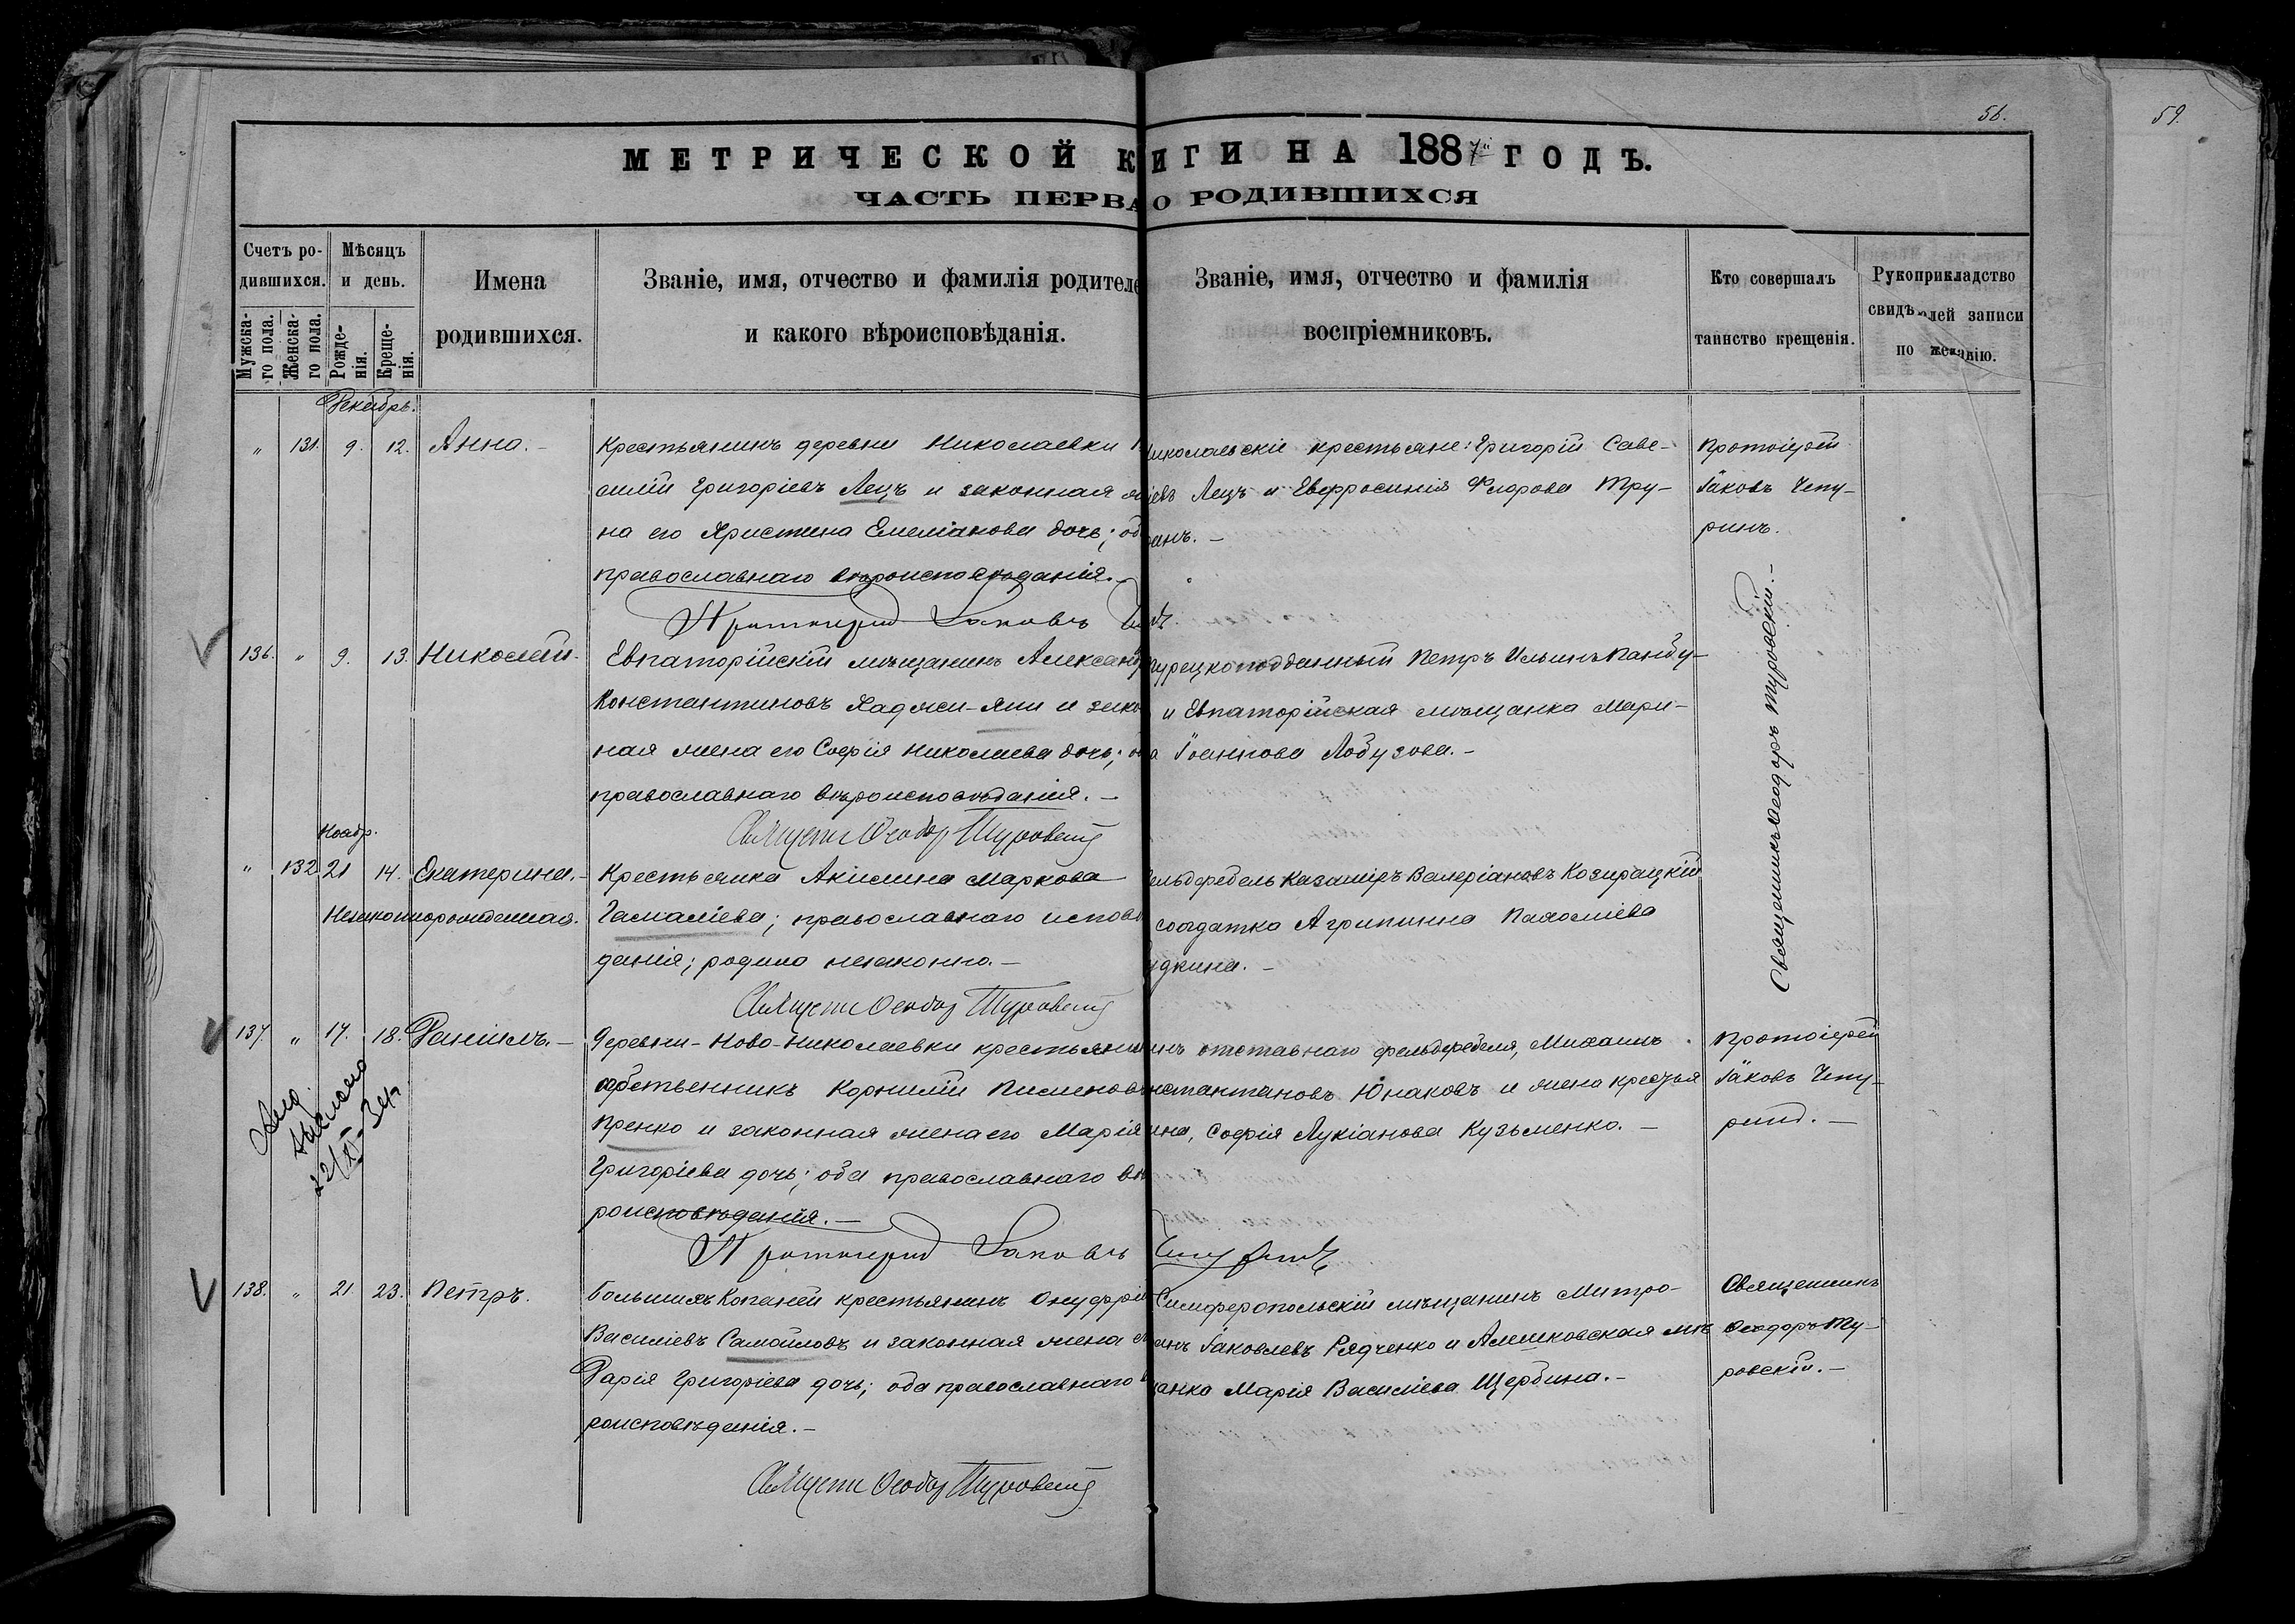 56.
59.
МЕТРИЧЕСКОЙ К
ИГИ НА 1887й ГОДЪ.
ЧАСТЬ ПЕРВА
О РОДИВШИХСЯ
Счетъ ро-
дившихся.
Мужска-
го пола.
Женска-
го пола.
Мѣсяцъ
и день.
Рожде-
нія.
Креще-
нія.
Имена
родившихся.
Званіе, имя, отчество и фамилія родителе
и какого вѣроисповѣданія.
Званіе, имя, отчество и фамилія
воспріемниковъ.
Кто совершалъ
таинство крещенія.
Рукоприкладство
свидѣ елей записи
по желанію.
Декабрь.
" 131. 9. 12. Анна.-
Крестьянинъ деревни Николаевки
силій Григоріевъ Лецъ и законная же
на его Христина Емеліанова дочь; об
православнаго вѣроисповѣданія.-
Протоіерей Іаковъ
иколаевскіе крестьяне: Григорій Саве-
іевъ Лецъ и Евфросинія Флорова Тру-
анъ.-
Протоіерей
Іаковъ Чепу-
ринъ.
136. " 9. 13. Николай.
Евпаторійскій мѣщанинъ Александ
Константиновъ Хаджи-Яни и зако
ная жена его Софія Николаева дочь; о
православнаго вѣроисповѣданія.-
Священникъ Ѳеодоръ Туровскій
турецкоподданный Петръ Ильинъ Панбу-
и Евпаторійская мѣщанка Мари-
а Іоаннова Лобузова.-
Священникъ Ѳеодоръ Туровскій.-
Ноябр.
" 132. 21 14. Екатерина.-
Незаконнорожденная.
Крестьянка Акилина Маркова
Гамаліева; православнаго исповѣ
данія; родила незаконно.-
Священникъ Ѳеодоръ Туровскій
ельдфебель Казаміръ Валеріановъ Козирацкій
солдатка Агрипина Пахоміева
дкина.-
137. " 17. 18. Даніилъ.-
Деревни-Ново-Николаевки крестьянин
собственникъ Корнилій Пименовъ
пренко и законная жена его Марія
Григоріева дочь; оба православнаго вѣ
роисповѣданія.-
Протоіерей Іаковъ Чепуринъ
инъ отставнаго фельдфебеля, Михаилъ
нстантановъ Юнаковъ и жена крестья
ина, Софія Лукіанова Кузьменко.-
Протоіерей
Іаковъ Чепу-
ринъ.-
138. " 21. 23. Петръ.
Большихъ Копаней крестьянинъ Онуфрій
Василіевъ Самойловъ и законная жена
Дарія Григоріева дочь; оба православнаго в
роисповѣданія.-
Священникъ Ѳеодоръ Туровскій
Симферопольскій мѣщанинъ Митро-
анъ Іаковлевъ Рядченко и Алешковская мѣ
анка Марія Василіева Щербина.-
Священникъ
Ѳеодоръ Ту-
ровскій.-